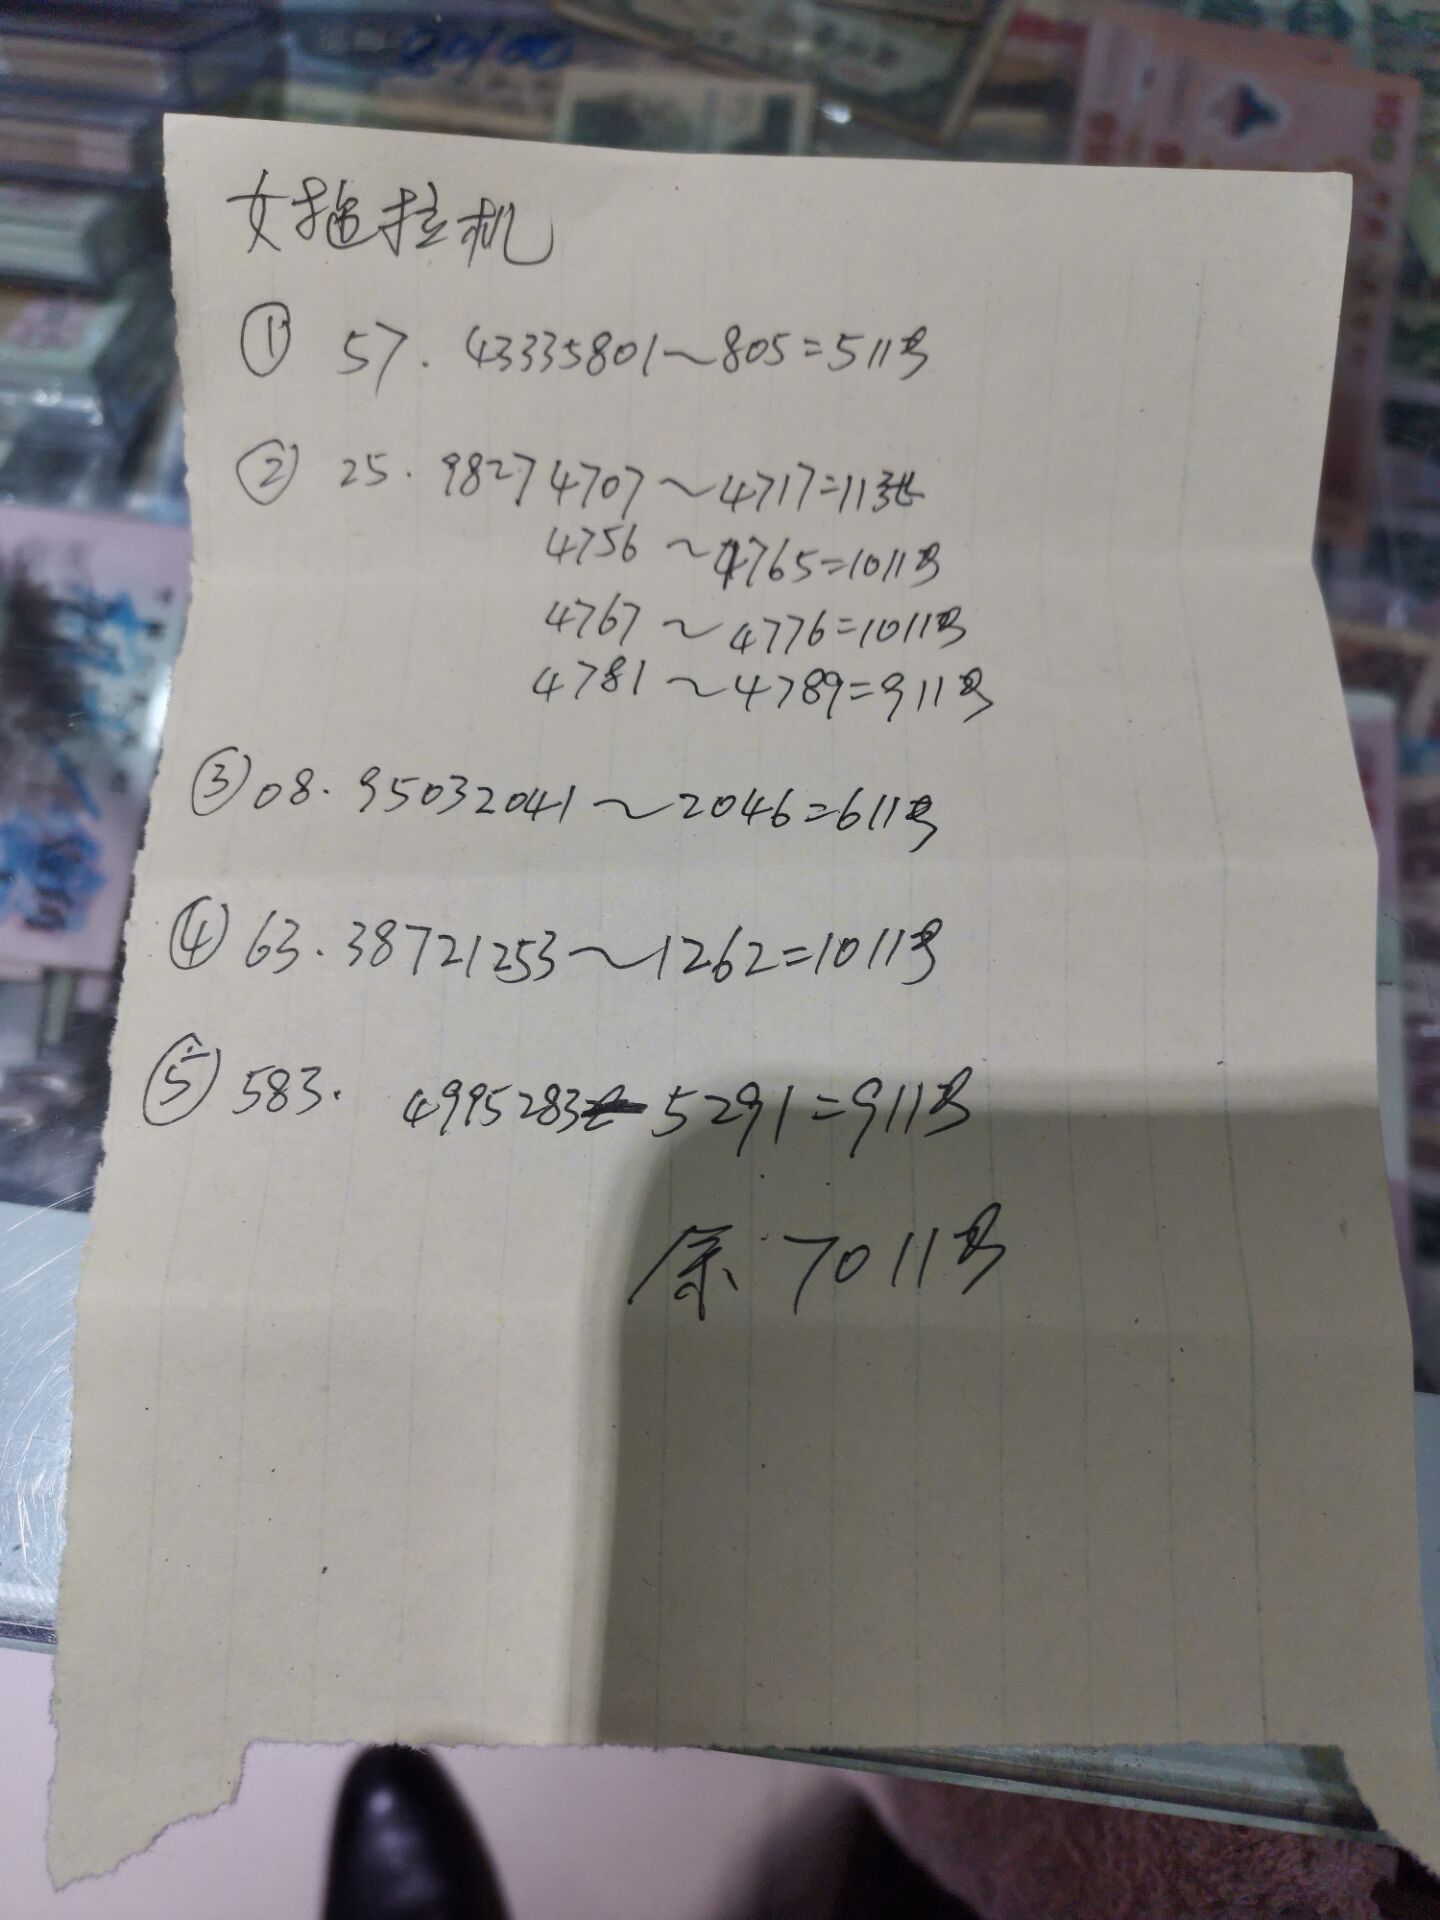 女拖拉机
① 57. 43335801~805=5张
② 25. 98274707~4717=11张
4756~4765=10张
4767~4776=10张
4781~4789=9张
③ 08. 95032041~2046=6张
④ 63. 38721253~1262=10张
⑤ 583. 4995283-5291=9张
余 70张